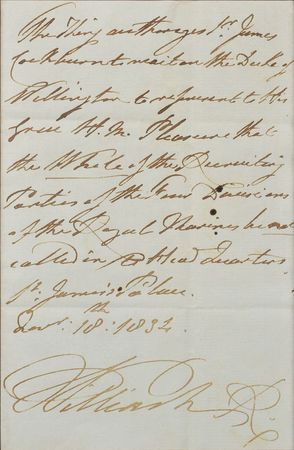 The King authorizes Sr. James
Cockburn to wait on the Duke of
Wellington to represent to His
Grace H. M. Pleasure that
the Whole of the Recruiting
Parties of the Four Divisions
of the Royal Marines be
called in to Head Quarters
St. James's Palace.
Novr. 18th. 1834.
William R.